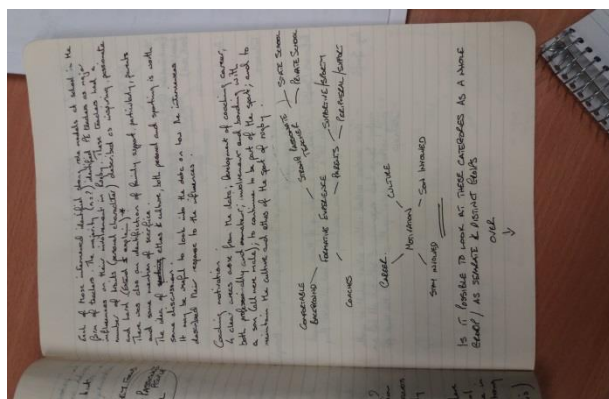 Each of those interviewed identified strong role models at school in the
form of teachers. The majority (n=?) identified PE teachers as major
influences on their involvement in Rugby. These teachers had a
number of traits (personal characteristics) described as inspiring, passionate
and hard (check & explain)
There was also an identification of family support, particularly, parents
and some mention of sacrifice.
The idea of ethos & culture, both personal and sporting is worth
some discussion.
It may be useful to look into the data on how the interviewees
described their response to the influences.
Coaching motivation:
4 clear areas arose from the data; Development of coaching career,
both professionally and monetary; involvement and bonding with
a son (all were male); to continue to be part of the sport; and to
maintain the culture and ethos of the sport of rugby.
COMFORTABLE
BACKGROUND
STRONG/PASSIONATE
TEACHER
STATE SCHOOL
PRIVATE SCHOOL
FORMATIVE EXPERIENCE
COACHES
PARENTS
SUPPORTIVE
PERIPHERAL/SUPPORT
CAREER
CULTURE
MOTIVATION
STAY INVOLVED
SON INVOLVED
IS IT POSSIBLE TO LOOK AT THESE CATEGORIES AS A WHOLE
GROUP/ AS SEPARATE & DISTINCT GROUPS
OVER